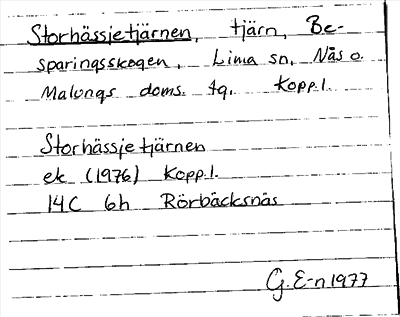 Storhässjetjärnen, tjärn, Be-
sparingsskogen, Lima sn, Näs o.
Malungs doms. tg. Kopp.l.
Storhässjetjärnen
ek (1976) Kopp.l.
14C 6h Rörbäcksnäs
G. E-n 1977